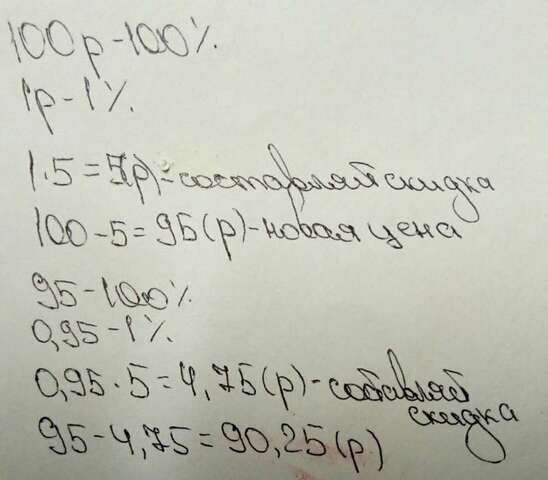 100р-100%
1р-1%
1·5=5(р)-составляй скидка
100-5=95(р)-новая цена
95-100%
0,95-1%
0,95·5=4,75(р)-составляй
скидка
95-4,75=90,25(р)